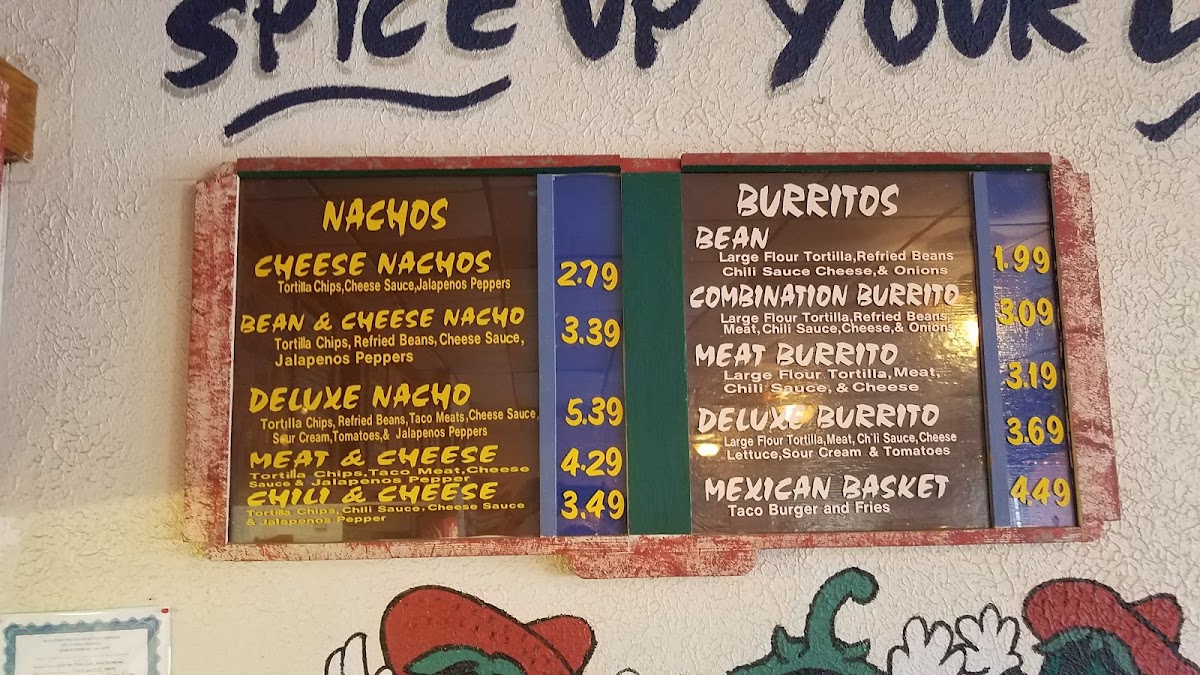 SPICE UP YOUR
NACHOS
CHEESE NACHOS 2.79
Tortilla Chips,Cheese Sauce,Jalapenos Peppers
BEAN & CHEESE NACHO 3.39
Tortilla Chips,Refried Beans,Cheese Sauce,
Jalapenos Peppers
DELUXE NACHO 5.39
Tortilla Chips,Refried Beans,Taco Meats,Cheese Sauce,
Sour Cream,Tomatoes,& Jalapenos Peppers
MEAT & CHEESE 4.29
Tortilla Chips,Taco Meat,Cheese
Sauce & Jalapenos Pepper
CHILI & CHEESE 3.49
Tortilla Chips,Chili Sauce,Cheese Sauce
& Jalapenos Pepper
BURRITOS
BEAN 1.99
Large Flour Tortilla,Refried Beans
Chili Sauce Cheese,& Onions
COMBINATION BURRITO 3.09
Large Flour Tortilla,Refried Beans,
Meat,Chili Sauce,Cheese,& Onions
MEAT BURRITO 3.19
Large Flour Tortilla,Meat,
Chili Sauce, & Cheese
DELUXE BURRITO 3.69
Large Flour Tortilla,Meat, Ch'li Sauce,Cheese
Lettuce,Sour Cream & Tomatoes
MEXICAN BASKET 4.49
Taco Burger and Fries